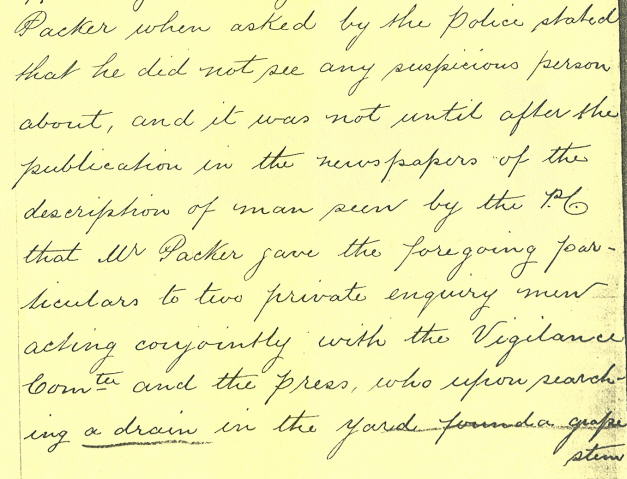 Packer when asked by the Police stated
that he did not see any suspicious person
about, and it was not until after the
publication in the newspapers of the
description of man seen by the P.C.
that Mr Packer gave the foregoing par-
ticulars to two private enquiry men
acting conjointly with the Vigilance
Comtee and the press, who upon search-
ing a drain in the yard found a grape
stem